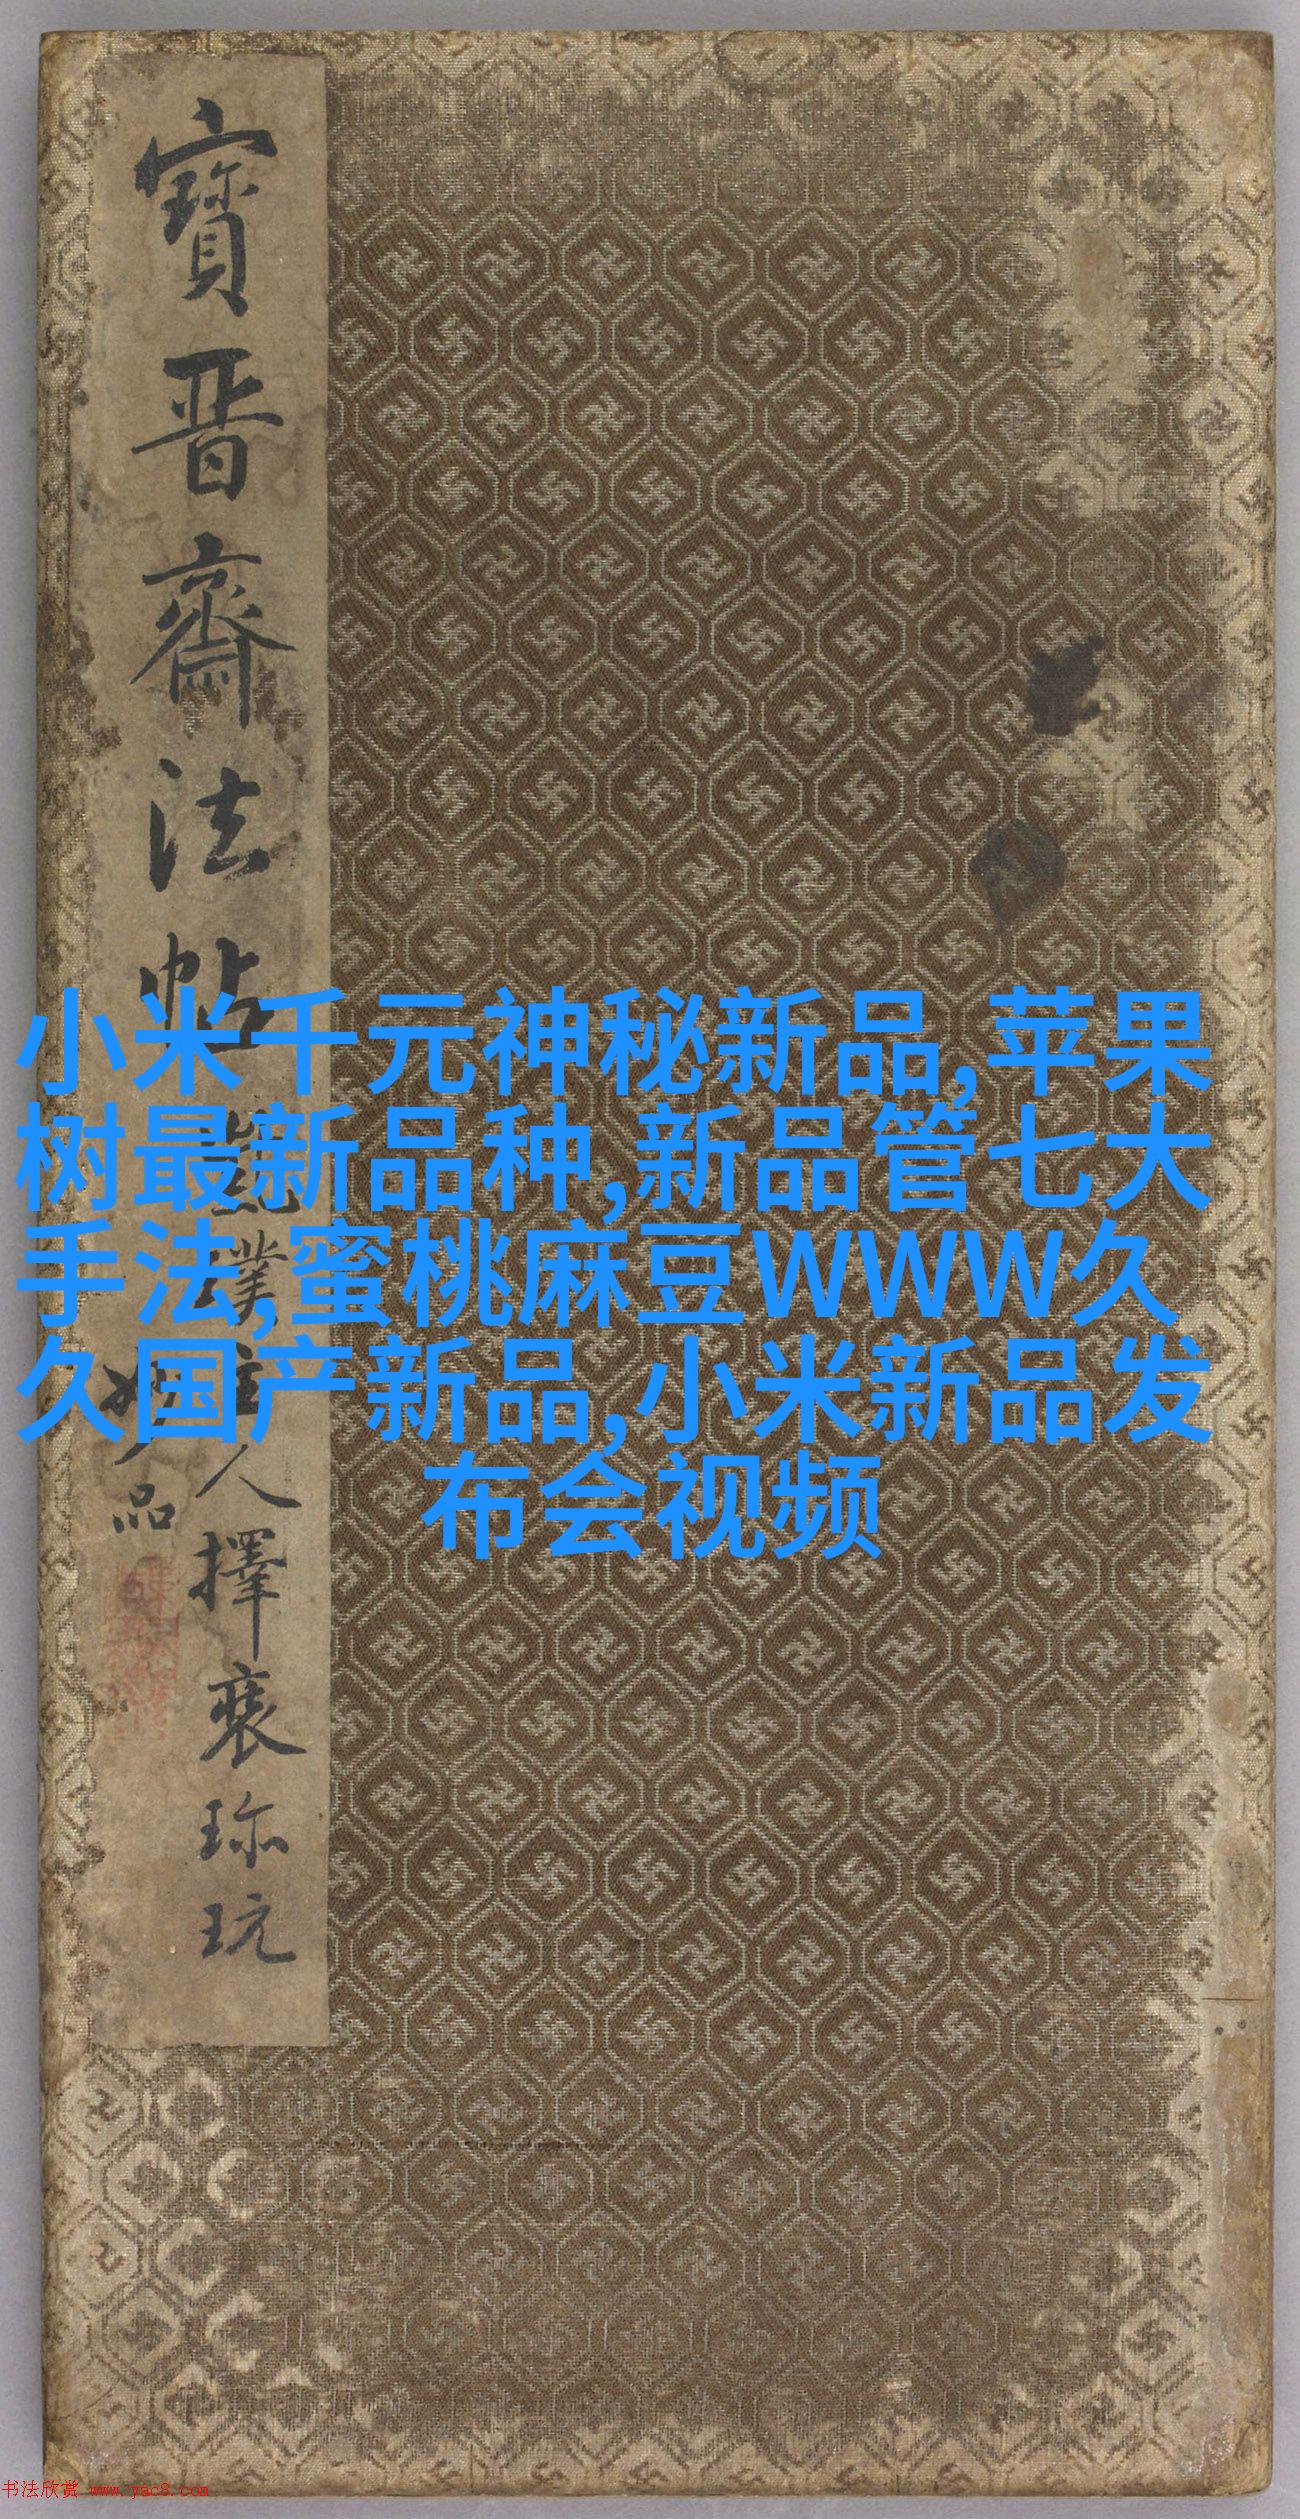 寶晉齋法帖
人擇裘珎玩
品
小米千元神秘新品,苹果
树最新品种,新品管七大
手法,蜜桃麻豆WWW久
久国产新品,小米新品发
布会视频
书法欣赏 www.yac8.com